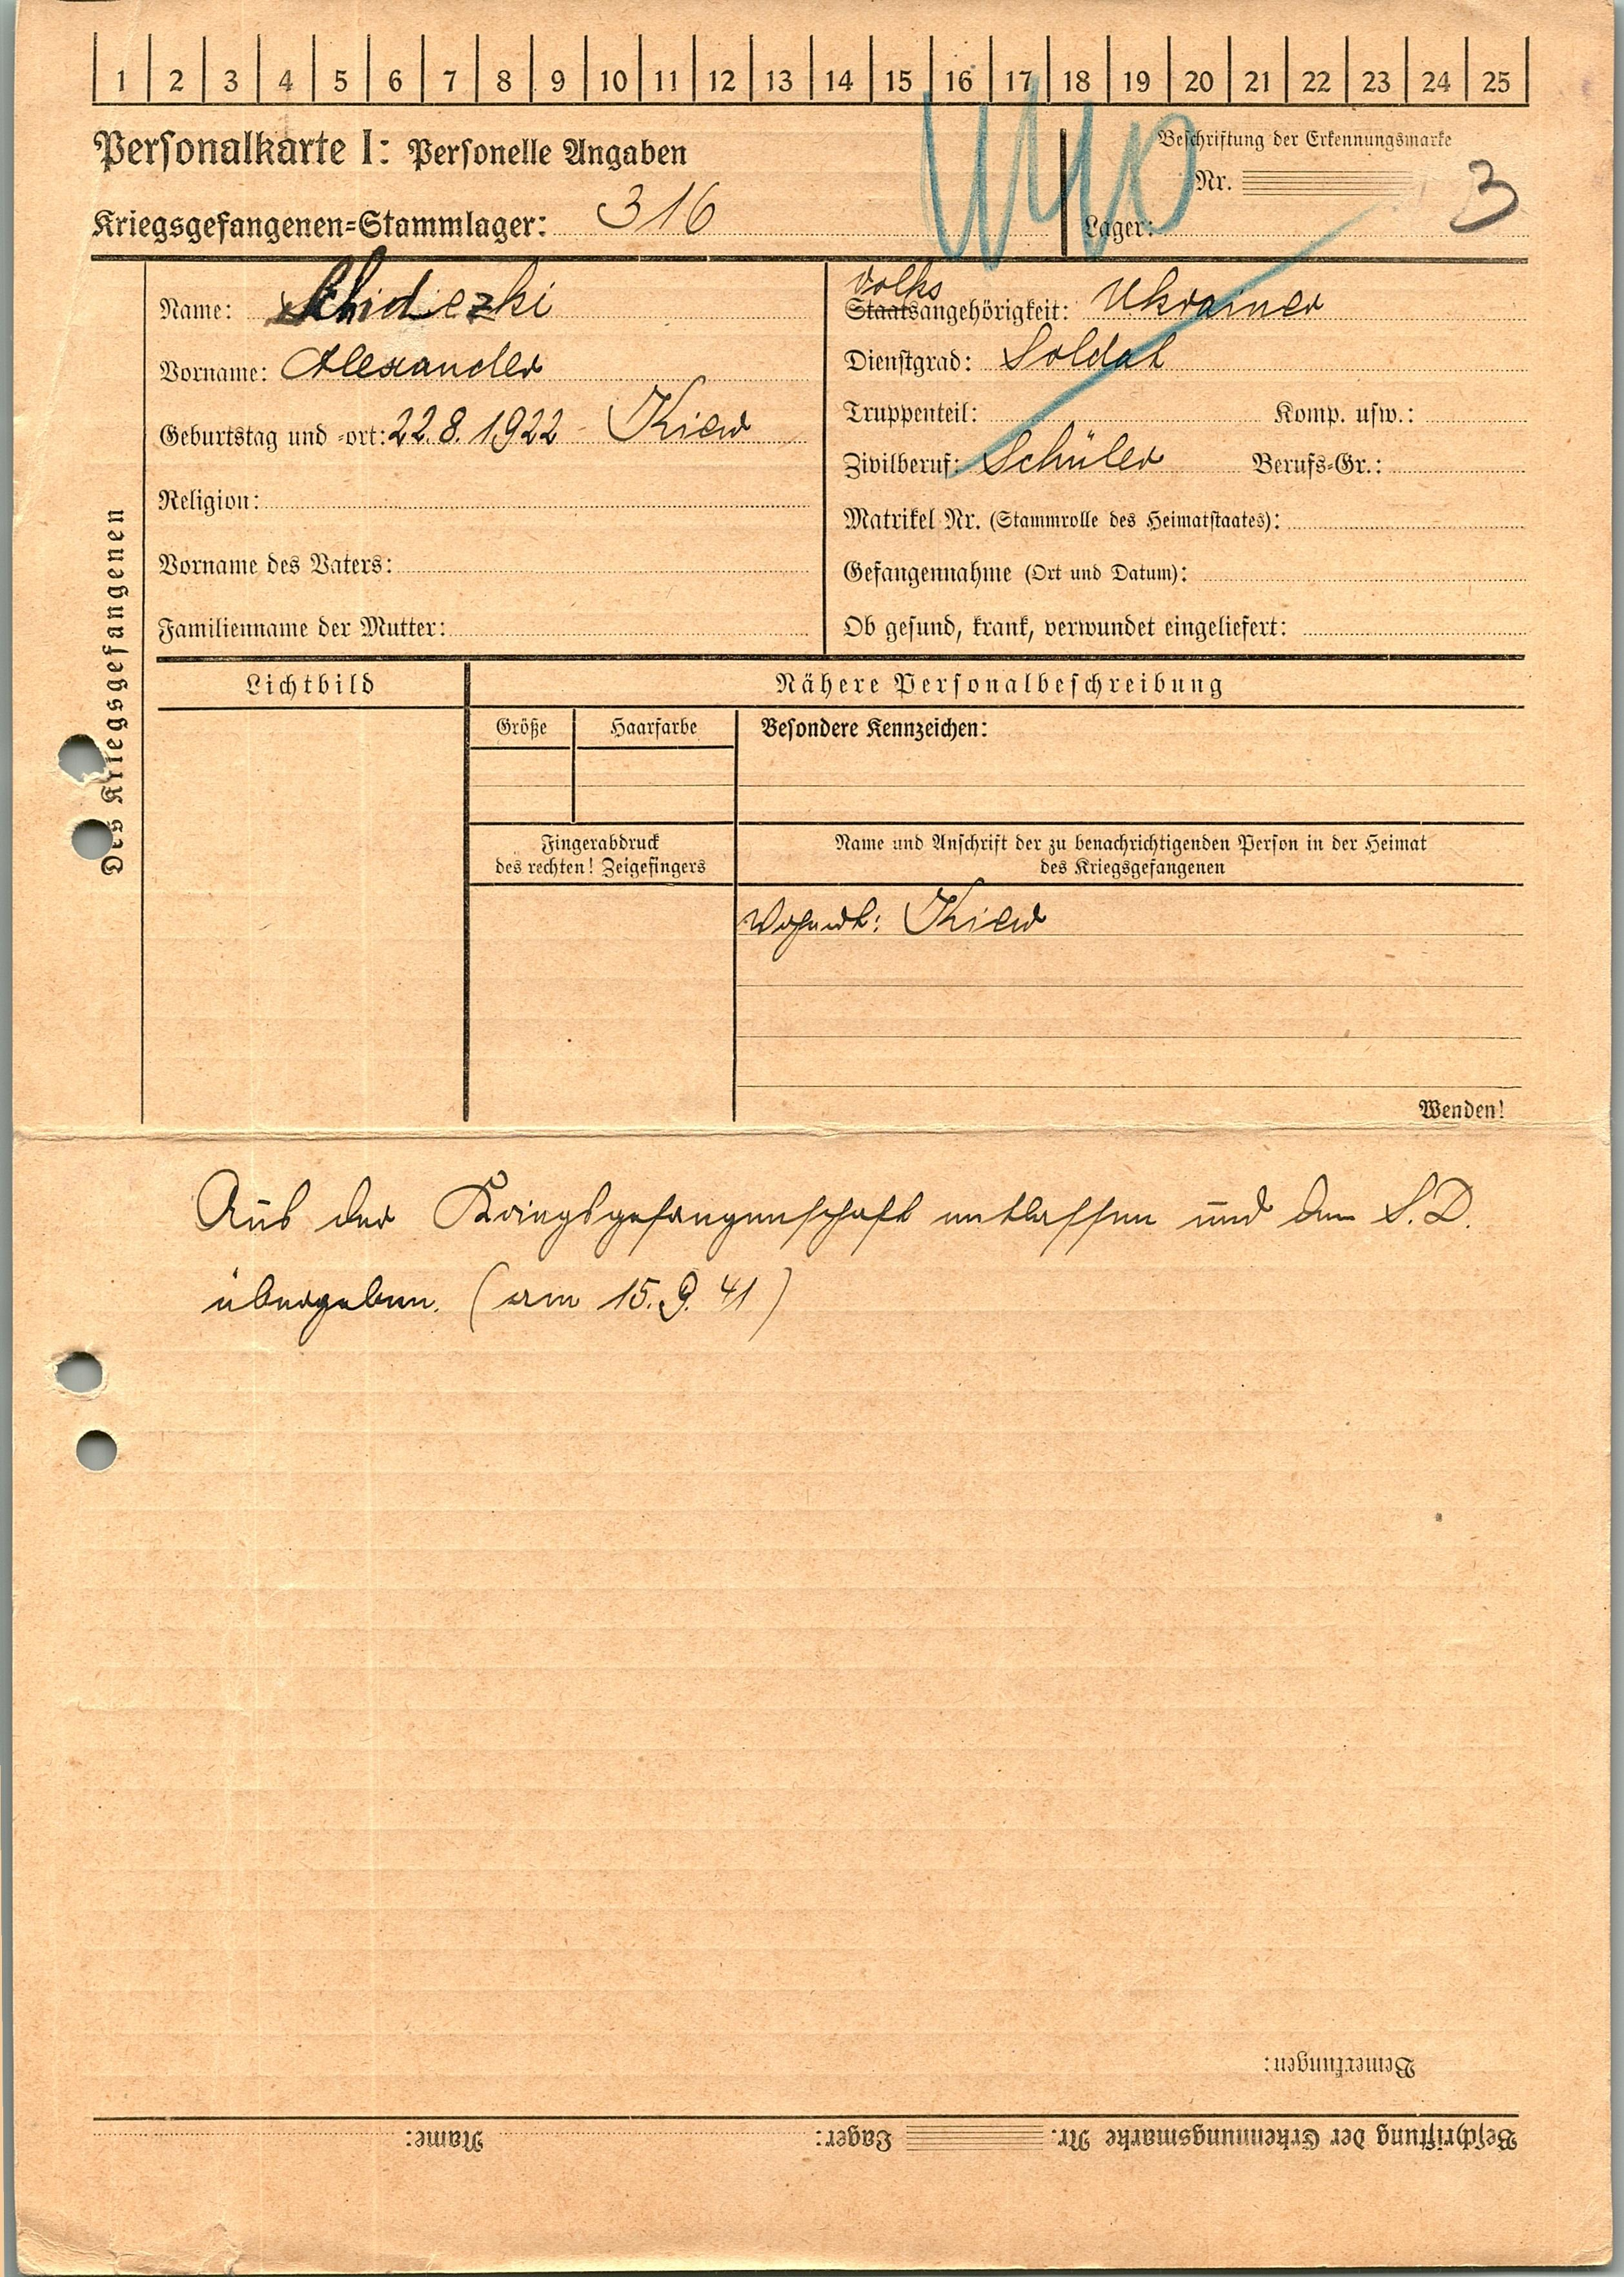 1 2 3 4 5 6 7 8 9 10 11 12 13 14 15 16 17 18 19 20 21 22 23 24 25
Personalkarte I: Personelle Angaben
Beschriftung der Erkennungsmarke
Nr.
3
Kriegsgefangenen-Stammlager: 316
Lager:
Des Kriegsgefangenen
Name: Schidezki
Vorname: Alexander
Geburtstag und -ort: 22.8.1922 Kiew
Religion:
Vorname des Vaters:
Familienname der Mutter:
Volks
Staatsangehörigkeit: Ukrainer
Dienstgrad: Soldat
Truppenteil: Komp. usw.:
Zivilberuf: Schüler Berufs-Gr.:
Matrikel Nr. (Stammrolle des Heimatstaates):
Gefangennahme (Ort und Datum):
Ob gesund, krank, verwundet eingeliefert:
Lichtbild
Nähere Personalbeschreibung
Größe Haarfarbe
Besondere Kennzeichen:
Fingerabdruck
des rechten! Zeigefingers
Name und Anschrift der zu benachrichtigenden Person in der Heimat
des Kriegsgefangenen
Wohnort: Kiew
Wenden!
Aus der Kriegsgefangenschaft entlassen und dem S.D.
übergeben. (am 15.9.41)
Bemerkungen:
Beschriftung der Erkennungsmarke Nr. Lager: Name: